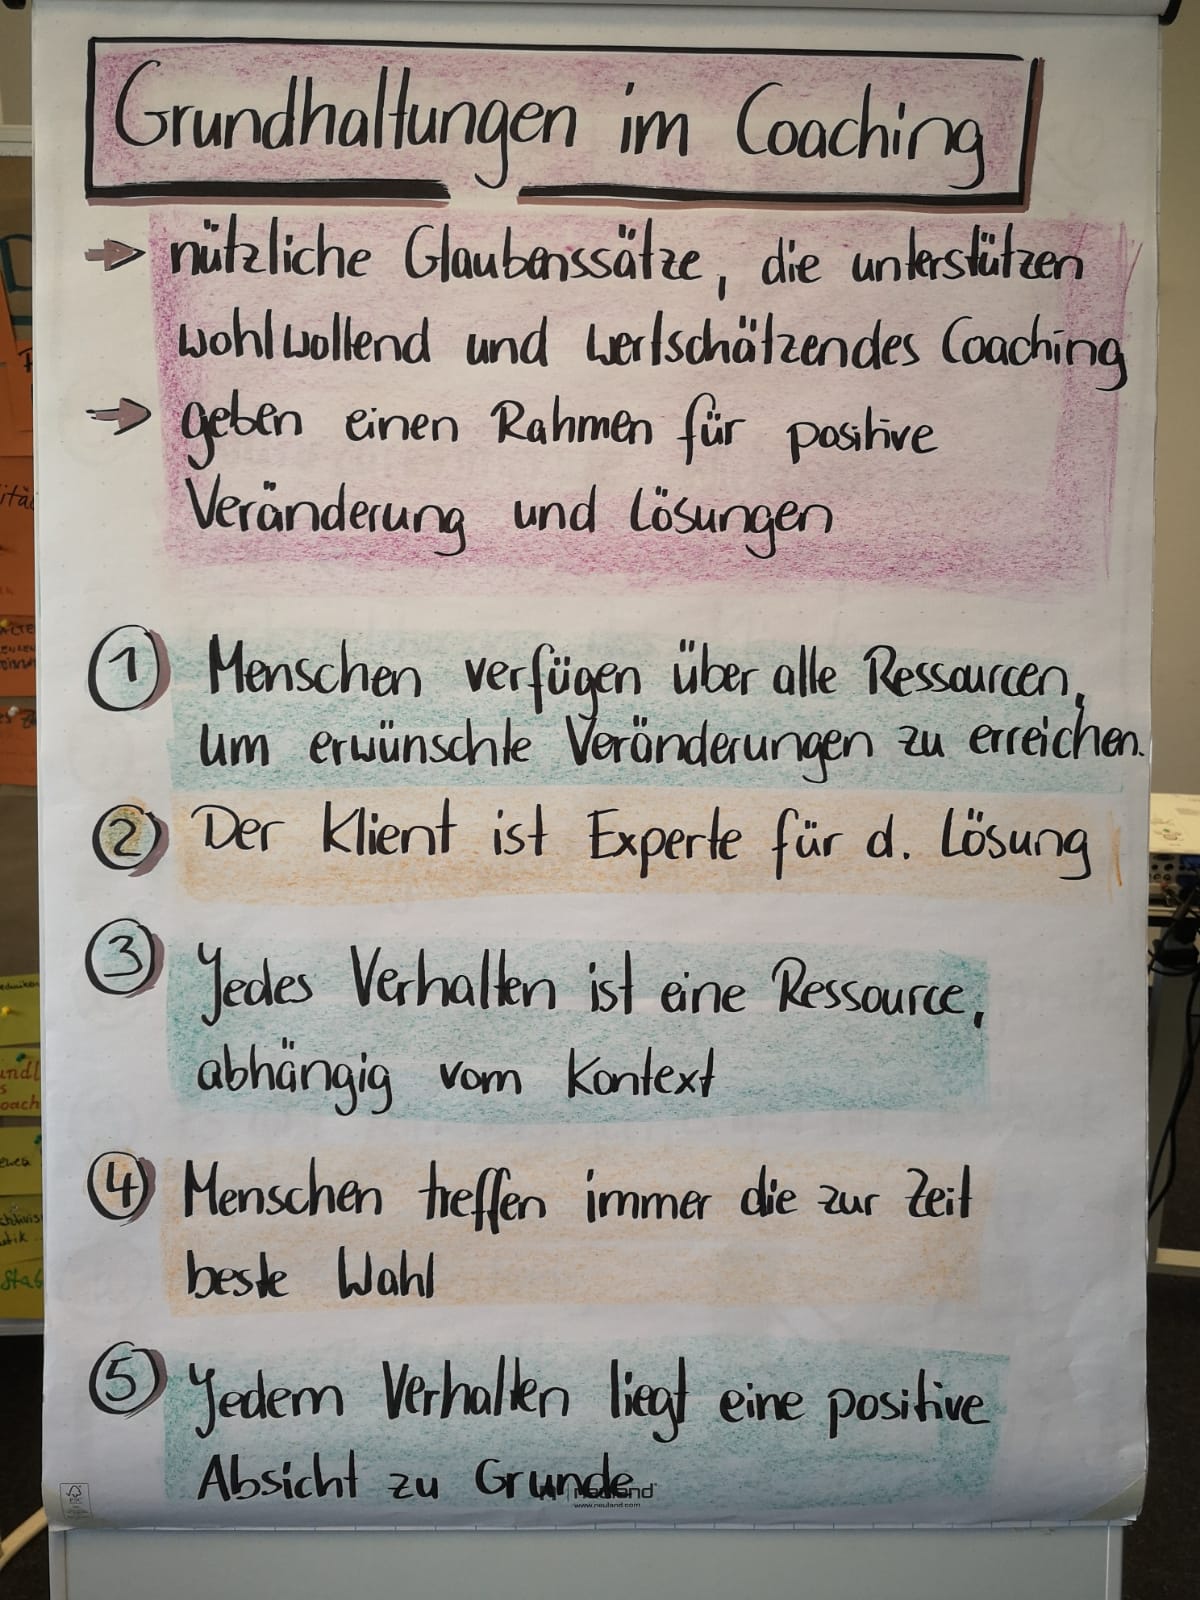 Grundhaltungen im Coaching
nützliche Glaubenssätze, die unterstützen
wohlwollend und wertschätzendes Coaching
geben einen Rahmen für positive
Veränderung und Lösungen
1 Menschen verfügen über alle Ressourcen,
um erwünschte Veränderungen zu erreichen.
2 Der Klient ist Experte für d. Lösung
3 Jedes Verhalten ist eine Ressource,
abhängig vom Kontext
4 Menschen treffen immer die zur Zeit
beste Wahl
5 Jedem Verhalten liegt eine positive
Absicht zu Grunde
neuland
www.neuland.com
FSC